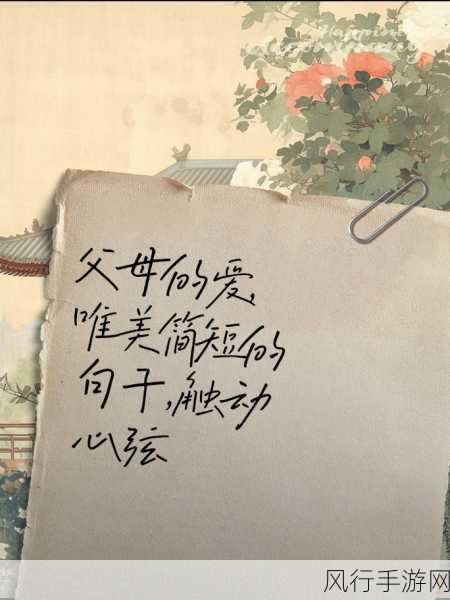 Happiness
父母的爱,
唯美简短的
句子,触动
心弦
风行手游网